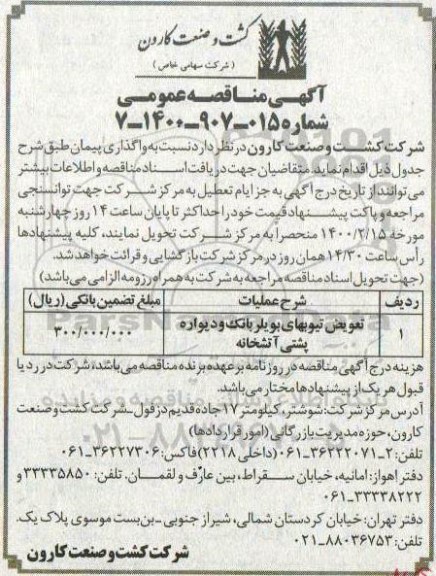 کشت و صنعت کارون
( شرکت سهامی خاص )
آگهی مناقصه عمومی
شماره ۰۱۵-۹۰۷-۱۴۰۰-۷
شرکت کشت و صنعت کارون در نظر دارد نسبت به واگذاری پیمان طبق شرح
جدول ذیل اقدام نماید. متقاضیان جهت دریافت اسناد مناقصه و اطلاعات بیشتر
می‌توانند از تاریخ درج آگهی به جز ایام تعطیل به مرکز شرکت جهت توانسنجی
مراجعه و پاکت پیشنهاد قیمت خود را حداکثر تا پایان ساعت ۱۴ روز چهارشنبه
مورخه ۱۴۰۰/۲/۱۵ منحصرا به مرکز شرکت تحویل نمایند، کلیه پیشنهادها
رأس ساعت ۱۴/۳۰ همان روز در مرکز شرکت بازگشایی و قرائت خواهد شد.
(جهت تحویل اسناد مناقصه مراجعه به شرکت به همراه رزومه الزامی می‌باشد)
ردیف شرح عملیات مبلغ تضمین بانکی (ریال)
۱ تعویض تیوبهای بویلر بانک و دیواره پشتی آتشخانه ۳۰۰/۰۰۰/۰۰۰
هزینه درج آگهی مناقصه در روزنامه بر عهده برنده مناقصه می‌باشد، شرکت در رد یا
قبول هر یک از پیشنهادها مختار می‌باشد.
آدرس مرکز شرکت: شوشتر، کیلومتر ۱۷ جاده قدیم دزفول - شرکت کشت و صنعت
کارون، حوزه مدیریت بازرگانی (امور قراردادها)
تلفن: ۲-۳۶۲۲۲۰۷۱-۰۶۱ (داخلی ۲۲۱۸) فاکس: ۳۶۲۲۷۳۰۶-۰۶۱
دفتر اهواز: امانیه، خیابان سقراط، بین عارف و لقمان. تلفن: ۳۳۳۳۵۸۵۰ و
۳۳۳۳۸۲۲۲-۰۶۱
دفتر تهران: خیابان کردستان شمالی، شیراز جنوبی - بن‌بست موسوی پلاک یک.
تلفن: ۸۸۰۳۶۷۵۳-۰۲۱
شرکت کشت و صنعت کارون